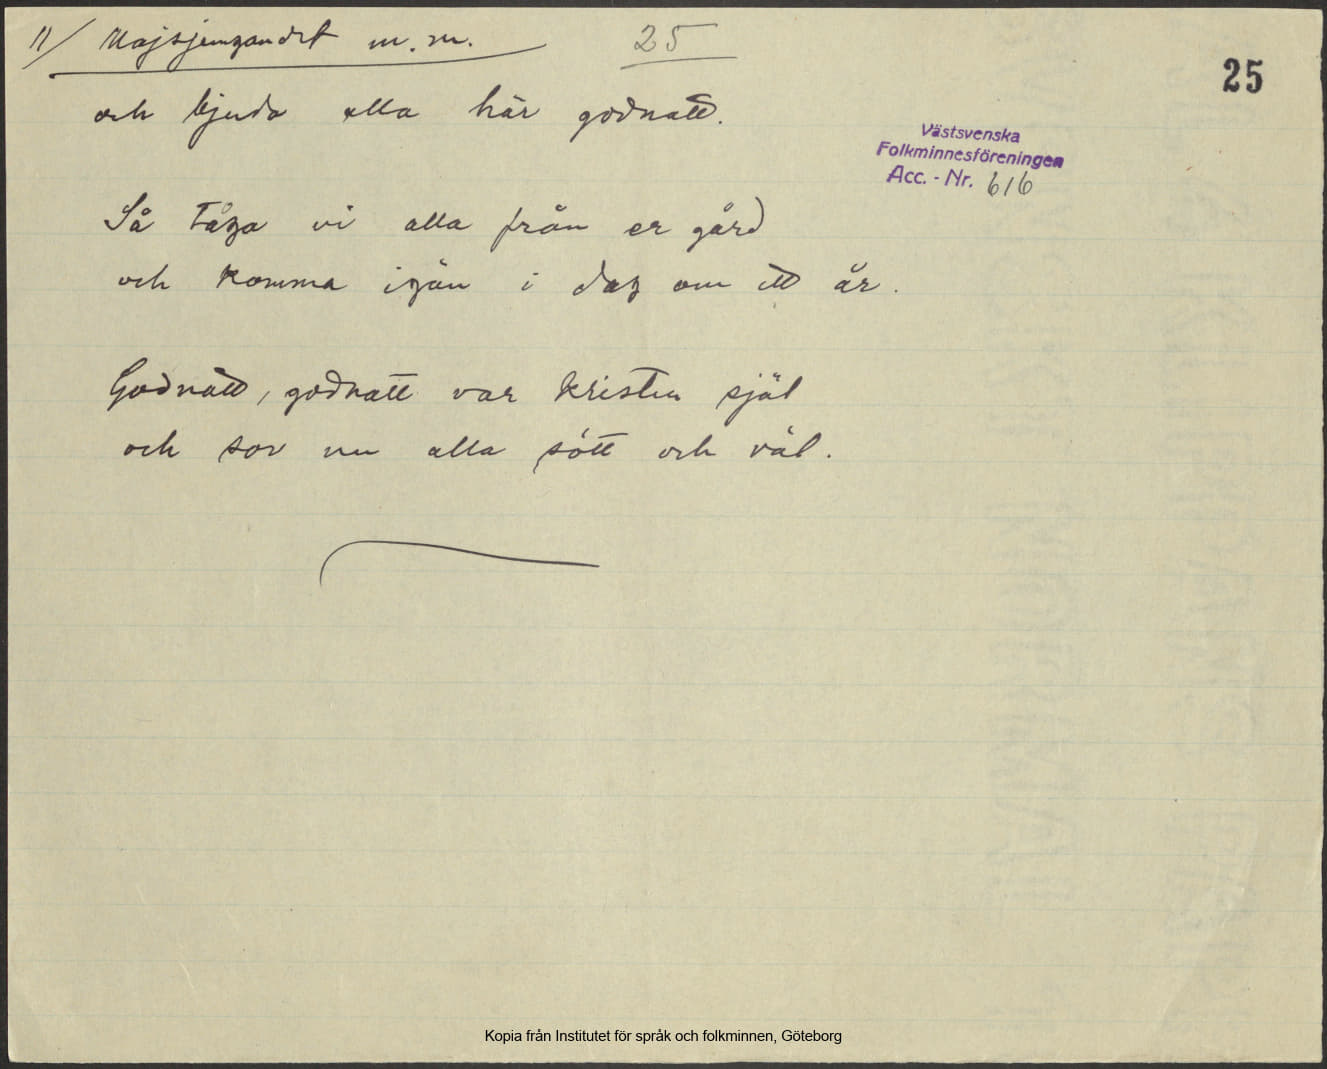 11/ Majsjungandet m.m. 25
25
och bjuda alla här godnatt.
Västsvenska
Folkminnesföreningen
Acc. - Nr. 616
Så tåga vi alla från er gård
och komma igän i dag om ett år.
Godnatt, godnatt var kristen själ
och sov nu alla sött och väl.
Kopia från Institutet för språk och folkminnen, Göteborg